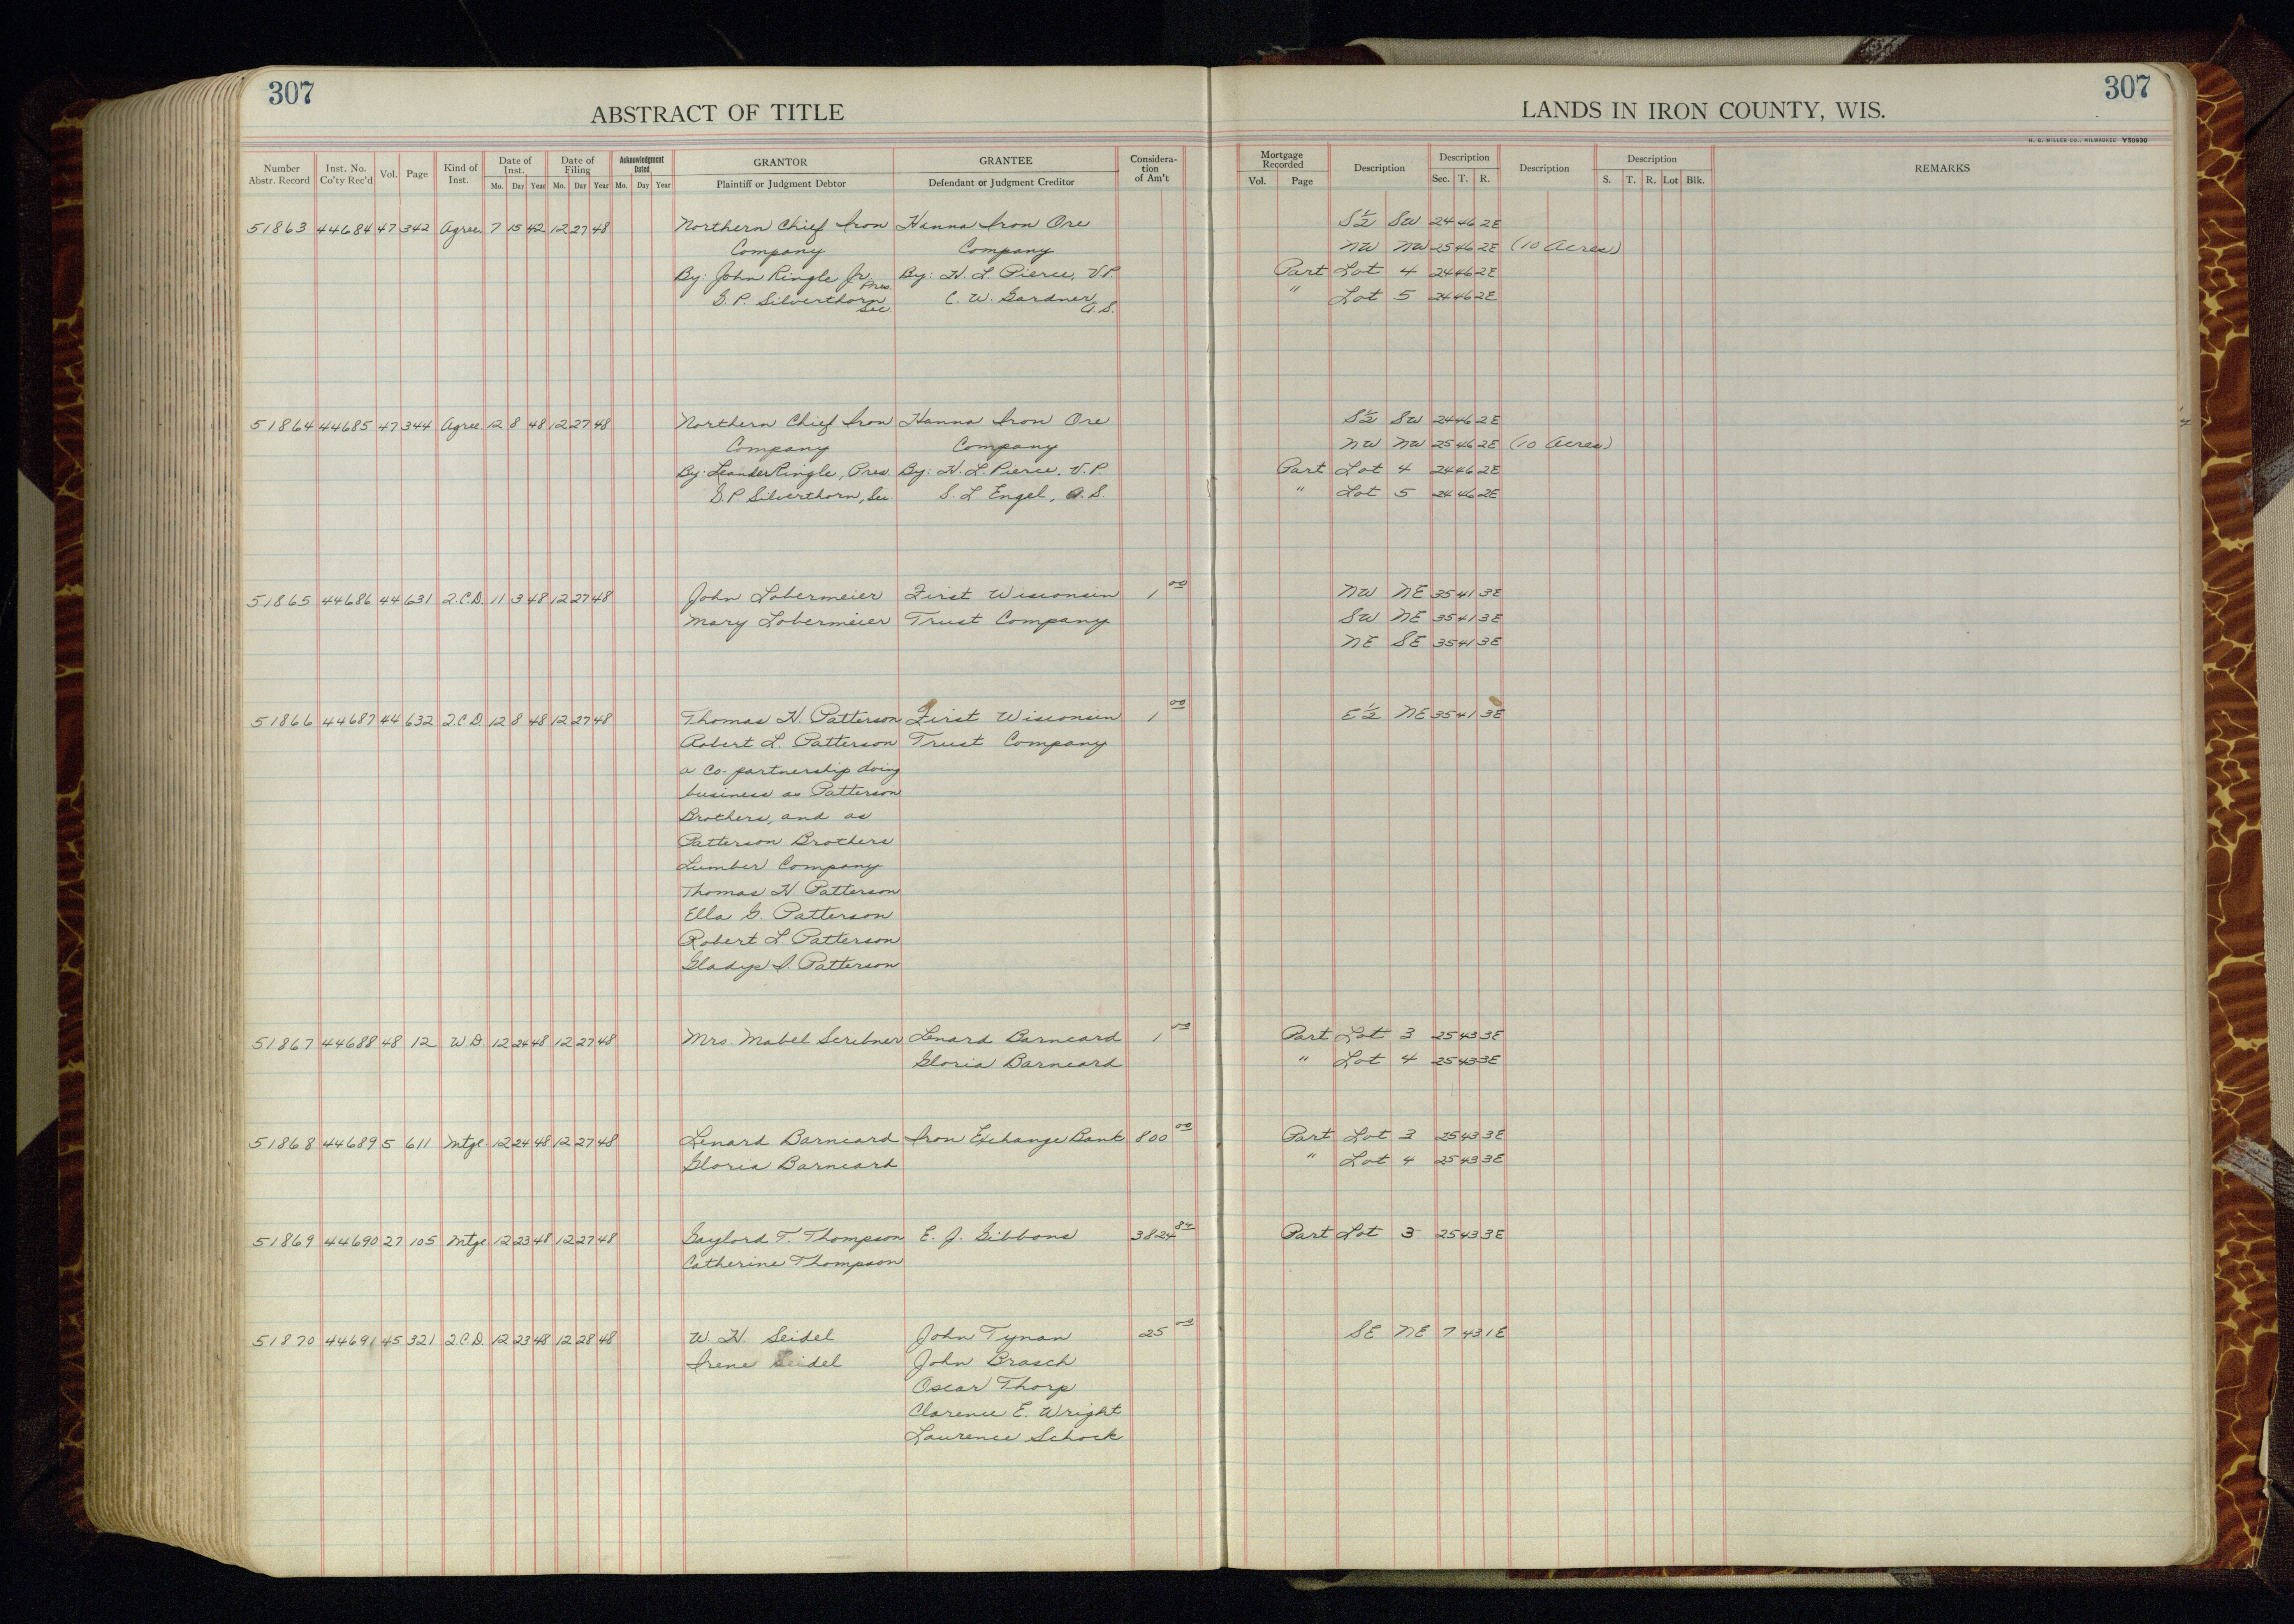 307
307
ABSTRACT OF TITLE
LANDS IN IRON COUNTY, WIS.
H. C. MILLER CO., MILWAUKEE Y50930
Number Abstr. Record Inst. No. Co'ty Rec'd Vol. Page Kind of Inst. Date of Inst. Mo. Day Year Date of Filing Mo. Day Year Acknowledgment Dated Mo. Day Year GRANTOR Plaintiff or Judgment Debtor GRANTEE Defendant or Judgment Creditor Considera-tion of Am't Mortgage Recorded Vol. Page Description Description Sec. T. R. Description Description S. T. R. Lot Blk. REMARKS
51863 44684 47 342 Agree. 7 15 42 12 27 48 Northern Chief Iron Hanna Iron Ore S½ SW 24 46 2E
Company Company NW NW 25 46 2E (10 Acres)
By: John Ringle Jr. Pres. By: H. L. Pierce, V.P. Part Lot 4 24 46 2E
G. P. Silverthorn Sec. C. W. Gardner A. S. " Lot 5 24 46 2E
51864 44685 47 344 Agree. 12 8 48 12 27 48 Northern Chief Iron Hanna Iron Ore S½ SW 24 46 2E
Company Company NW NW 25 46 2E (10 Acres)
By: Leander Ringle, Pres. By: H. L. Pierce, V.P. Part Lot 4 24 46 2E
G.P. Silverthorn, Sec. S. L Engel, A. S. " Lot 5 24 46 2E
51865 44686 44 631 2.C.D. 11 3 48 12 27 48 John Lobermeier First Wisconsin 1 00 NW NE 35 41 3E
Mary Lobermeier Trust Company SW NE 35 41 3E
NE SE 35 41 3E
51866 44687 44 632 2.C.D. 12 8 48 12 27 48 Thomas H. Patterson First Wisconsin 1 00 E½ NE 35 41 3E
Robert L. Patterson Trust Company
a co-partnership doing
business as Patterson
Brothers, and as
Patterson Brothers
Lumber Company
Thomas H. Patterson
Ella G. Patterson
Robert L. Patterson
Gladys I. Patterson
51867 44688 48 12 W.D. 12 24 48 12 27 48 Mrs. Mabel Scribner Lenard Barneard 1 00 Part Lot 3 25 43 3E
Gloria Barneard " Lot 4 25 43 3E
51868 44689 5 611 Mtge 12 24 48 12 27 48 Lenard Barneard Iron Exchange Bank 800 00 Part Lot 3 25 43 3E
Gloria Barneard " Lot 4 25 43 3E
51869 44690 27 105 Mtge 12 23 48 12 27 48 Gaylord T. Thompson E. J. Gibbons 3824 84 Part Lot 3 25 43 3E
Catherine Thompson
51870 44691 45 321 2.C.D. 12 23 48 12 28 48 W. H. Seidel John Tynan 25 00 SE NE 7 43 1E
Irene Seidel John Brasch
Oscar Thorp
Clarence E. Wright
Laurence Schock